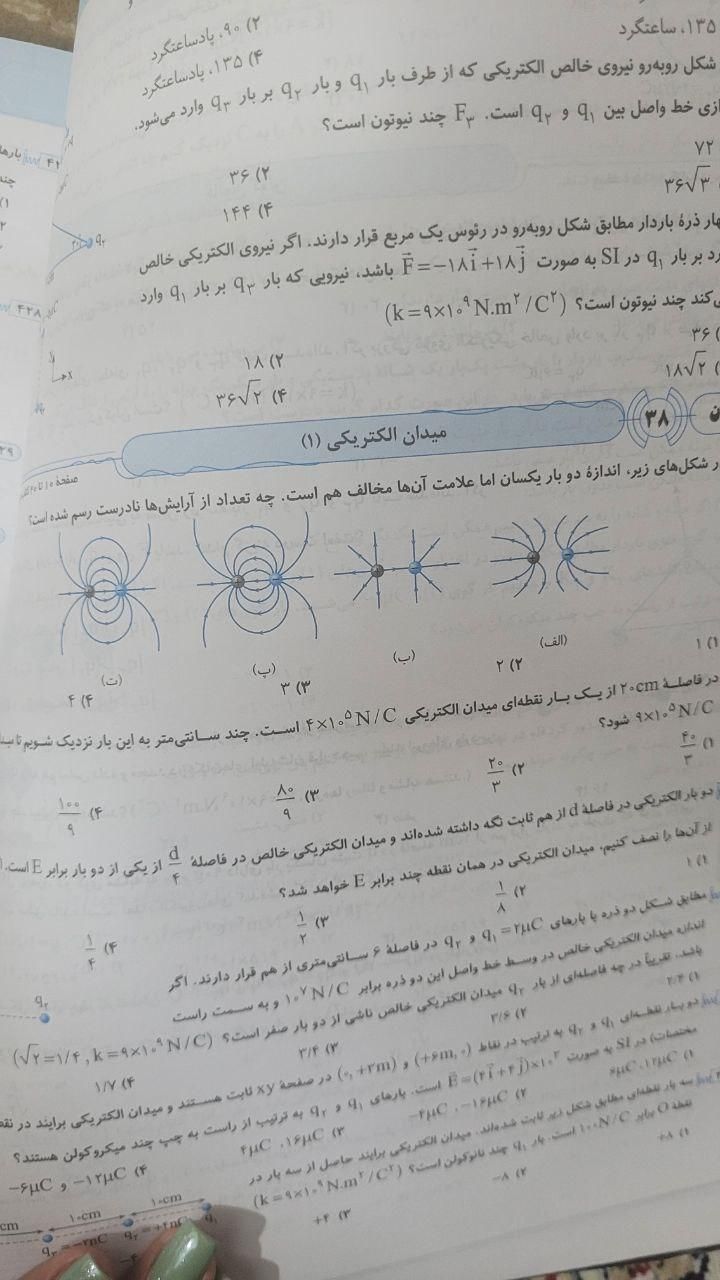 ۱۳۵، ساعتگرد
۲) ۹۰، پادساعتگرد
۴) ۱۳۵، پادساعتگرد
شکل روبه‌رو نیروی خالص الکتریکی که از طرف بار q۱ و بار q۲ بر بار q۳ وارد می‌شود،
ازی خط واصل بین q۱ و q۲ است. F۳ چند نیوتون است؟
۷۲
۲) ۳۶
۳۶√۳
۴) ۱۴۴
هار ذرۀ باردار مطابق شکل روبه‌رو در رئوس یک مربع قرار دارند. اگر نیروی الکتریکی خالص
رد بر بار q۱ در SI به صورت F=−۱۸i+۱۸j باشد، نیرویی که بار q۳ بر بار q۱ وارد
ی‌کند چند نیوتون است؟ (k=۹×۱۰^۹ N.m^۲/C^۲)
۳۶
۲) ۱۸
۱۸√۲
۴) ۳۶√۲
۳۸
میدان الکتریکی (۱)
ر شکل‌های زیر، اندازۀ دو بار یکسان اما علامت آن‌ها مخالف هم است. چه تعداد از آرایش‌ها نادرست رسم شده است؟
(الف)
(ب)
(پ)
(ت)
۱) ۱
۲) ۲
۳) ۳
۴) ۴
در فاصلۀ ۲۰cm از یک بار نقطه‌ای میدان الکتریکی ۴×۱۰^۵ N/C است. چند سانتی‌متر به این بار نزدیک شویم تا
۹×۱۰^۵ N/C شود؟
۱) ۴۰/۳
۲) ۲۰/۳
۳) ۸۰/۹
۴) ۱۰۰/۹
دو بار الکتریکی در فاصلۀ d از هم ثابت نگه داشته شده‌اند و میدان الکتریکی خالص در فاصلۀ d/۴ از یکی از دو بار برابر E است.
از آن‌ها را نصف کنیم، میدان الکتریکی در همان نقطه چند برابر E خواهد شد؟
۱) ۱
۲) ۱/۸
۳) ۱/۲
۴) ۱/۴
مطابق شکل دو ذره با بارهای q۱=۲μC و q۲ در فاصلۀ ۶ سانتی‌متری از هم قرار دارند. اگر
اندازه میدان الکتریکی خالص در وسط خط واصل این دو ذره برابر ۱۰^۷ N/C و به سمت راست
باشد، تقریباً در چه فاصله‌ای از بار q۲ میدان الکتریکی خالص ناشی از دو بار صفر است؟ (√۲=۱/۴, k=۹×۱۰^۹ N/C)
۲) ۳/۶
۳) ۳/۴
۴) ۱/۷
q۲
دو بار نقطه‌ای q۱ و q۲ به ترتیب در نقاط (+۶m,۰) و (۰,+۳m) در صفحۀ xy ثابت هستند و میدان الکتریکی برایند در
مختصات) در SI به صورت E=(۴i+۴j)×۱۰^۳ است. بارهای q۱ و q۲ به ترتیب از راست به چپ چند میکروکولن هستند؟
۱) ۱۲μC، ۶μC
۲) −۱۶μC، −۴μC
۳) ۱۶μC، ۴μC
۴) −۱۲μC و −۶μC
سه بار نقطه‌ای مطابق شکل زیر ثابت شده‌اند. میدان الکتریکی برایند حاصل از سه بار در
نقطۀ O برابر ۱۰۰N/C است. بار q۱ چند نانوکولن است؟ (k=۹×۱۰^۹ N.m^۲/C^۲)
۱) +۸
۲) −۸
۳) +۴
۱۰cm
۱۰cm
q۲=+۴nC
q۱